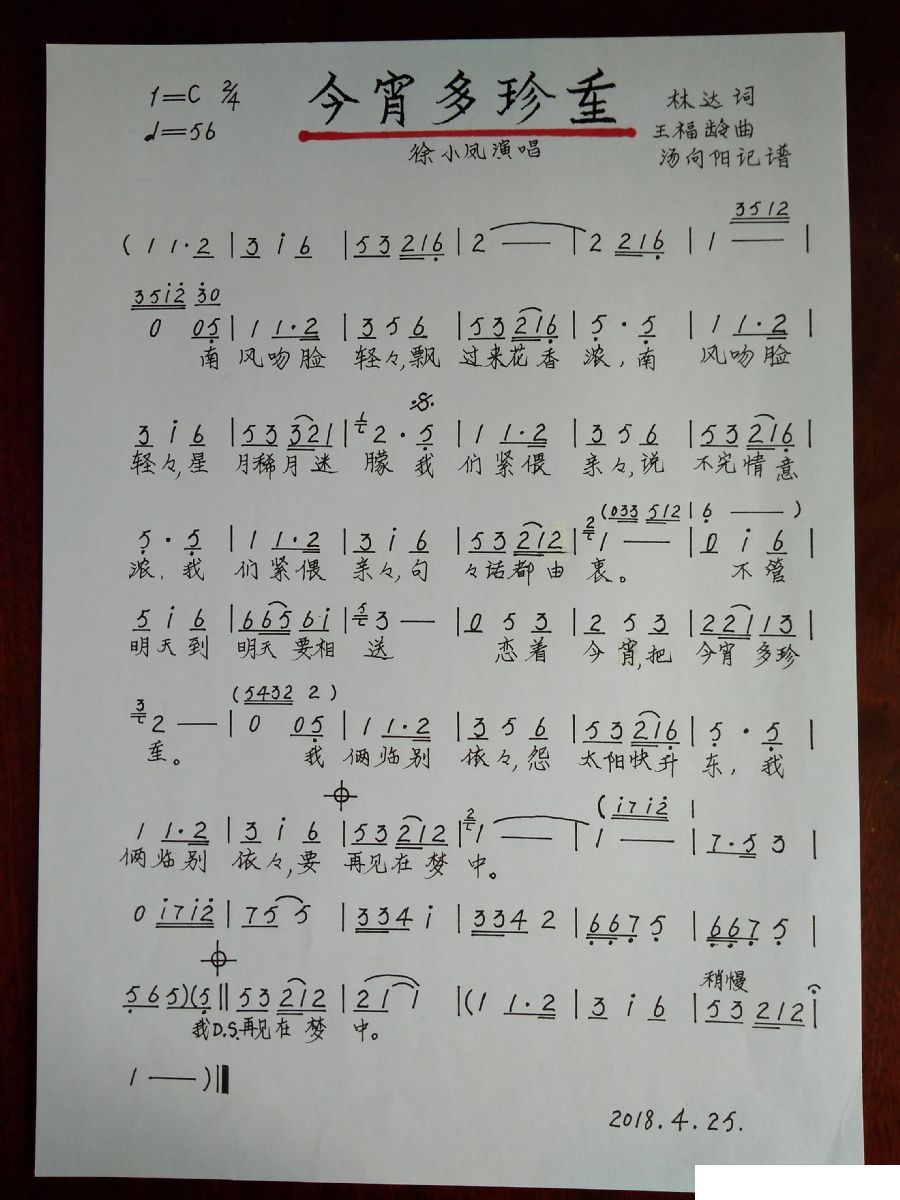 1=C 2/4
♩=56
今宵多珍重
徐小凤演唱
林达词
王福龄曲
汤向阳记谱
3512
( 1 1·2 | 3 i 6 | 53 216 | 2 — | 2 216 | 1 — |
35i2 30
0 05 | 1 1·2 | 3 5 6 | 53 216 | 5 · 5 | 1 1·2 |
南 风吻脸 轻々,飘 过来花香 浓,南 风吻脸
3 i 6 | 53 321 | 2 · 5 | 1 1·2 | 3 5 6 | 53 216 |
轻々,星 月稀月迷 朦 我 们紧偎 亲々,说 不完情意
(033 512 | 6 — )
5 · 5 | 1 1·2 | 3 i 6 | 53 212 | 1 — | 0 i 6 |
浓,我 们紧偎 亲々,句 々话都由 衷。 不管
5 i 6 | 665 6·i | 3 — | 0 5 3 | 2 5 3 | 221 13 |
明天到 明天要相 送 恋着 今宵,把 今宵多珍
(5432 2 )
2 — | 0 05 | 1 1·2 | 3 5 6 | 53 216 | 5 · 5 |
重。 我 俩临别 依々,怨 太阳快升 东,我
(i7i2 |
1 1·2 | 3 i 6 | 53 212 | 1 — | 1 — | 7·5 3 |
俩临别 依々,要 再见在梦 中。
0 i7i2 | 75 5 | 334 i | 334 2 | 667 5 | 667 5 |
稍慢
565)(5 || 53 212 | 21 1 |(1 1·2 | 3 i 6 | 53 212 |
我D.S.再见在梦 中。
1 — )||
2018.4.25.